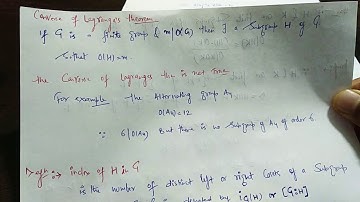 Converse of Lagrange's theorem
If G is a finite group & m|O(G) then ∃ a Subgroup H of G
So that O(H)=m.
the Converse of Lagranges thm is not true
For example the Alternating group A4
O(A4)=12
∵ 6|O(A4) But there is no Subgroup of A4 of order 6.
Defn :→ index of H in G
is the number of distinct left or right Cosets of a Subgroup
is denoted by iG(H) or [G:H]